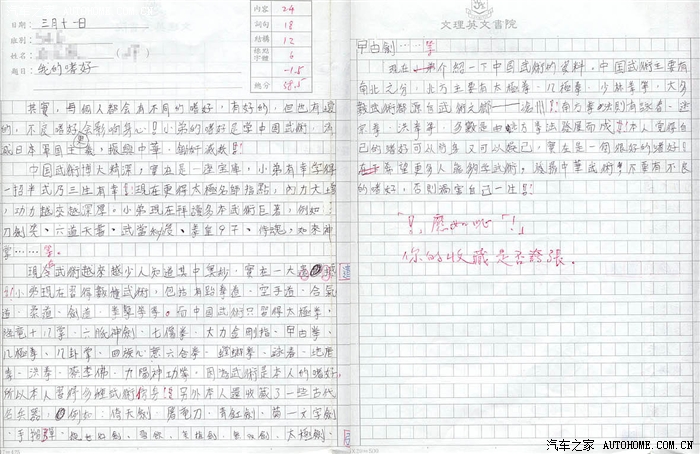 日期：三月十一日
班別：
姓名：
題目：我的嗜好
內容 24
詞句 18
結構 12
標點字體 6
-1.5
總分 58.5
其實，每個人都會有不同的嗜好，有好的，但也有壞
的，不良嗜好會影響身心！小弟的嗜好是學中國武術，為
滅日本軍國主義，振興中華，鋤奸滅敵！
中國武術博大精深，實在是一座寶庫，小弟有幸學得
一招半式乃三生有幸！現在更得大極名師指點，內力大增
，功力越來越深厚。小弟現在拜讀多本武術巨著，例如：
刀劍笑、六道天書、武當紛爭、拳皇97、傳魂、如來神
掌……等。
現今武術越來越少人知道其中奧妙，實在一大遺
小弟現在習得數種武術，包括有跆拳道、空手道、合氣
道、柔道、劍道、拳擊等等。而中國武術只習得太極拳、
降龍十八掌、六脈神劍、七傷拳、大力金剛指、甲由拳、
八極拳、八卦掌、四極心意六合拳、螳螂拳、詠春、地厝
拳、洪拳、蔡李佛、九陽神功等，因為武術是本人的嗜好，
所以本人習得多種武術！另外本人還收藏了一些古代
名兵器，例如：倚天劍、屠龍刀、青紅劍、第一文字劍
、太極劍、
文理英文書院
甲由劍……等
現在，介紹一下中國武術的資料。中國武術主要有
南北之分，北方主要有太極拳、八極拳、少林拳等，大多
數武術都源自武術之鄉——滄州！南方拳法則有詠春、迷
宗拳、洪拳等，多數是由北方拳法發展而成！本人覺得自
己的嗜好可以防身又可以修己，實在是一個很好的嗜好！
希望更多人能夠學武術，發揚中華武術！不要有不良
的嗜好，否則痛害自己一生！
「！」應如此「！」
你的收藏是否誇張。
汽车之家 AUTOHOME.COM.CN